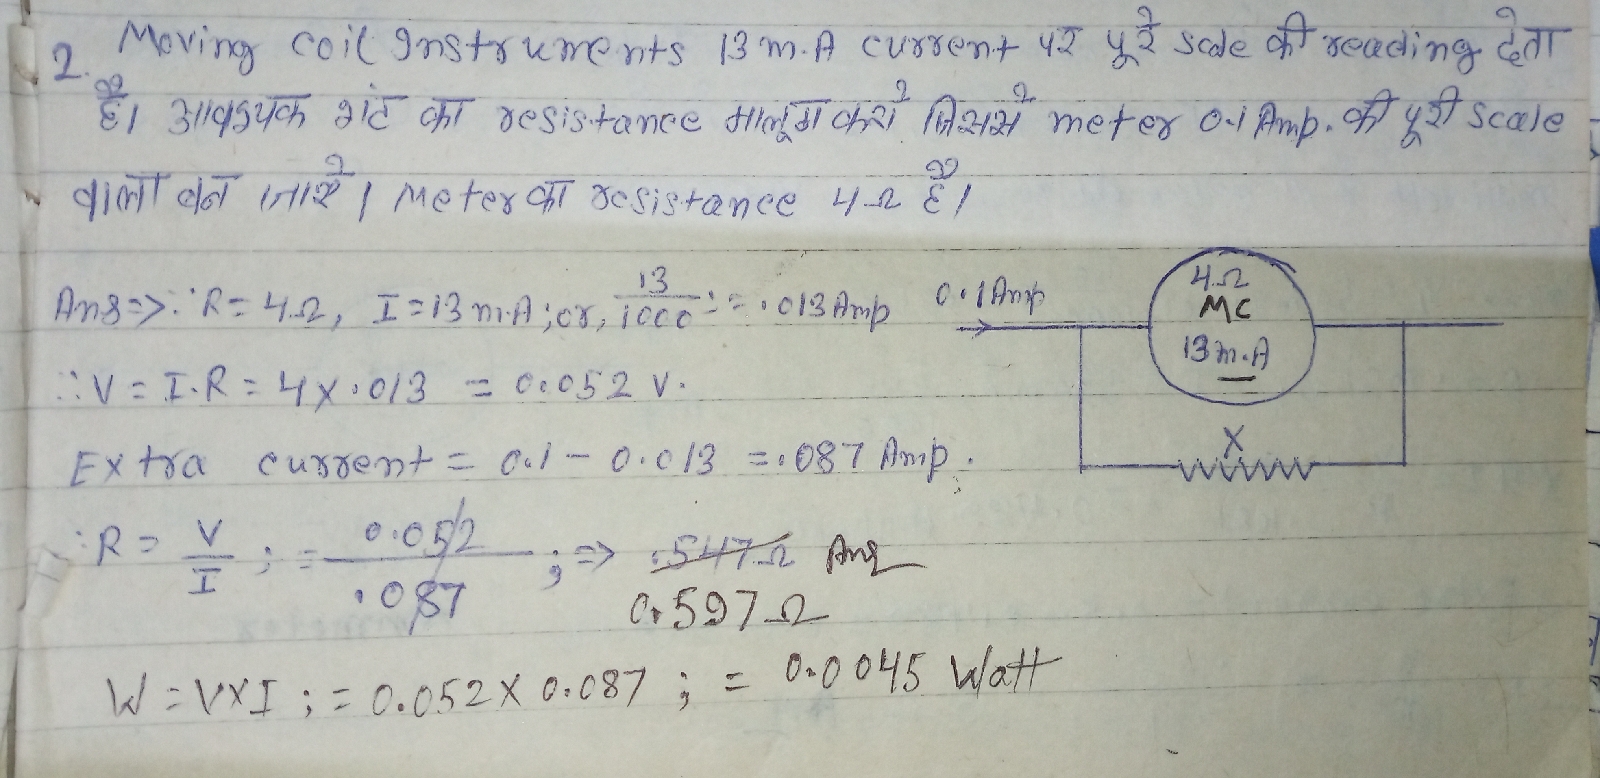 2. Moving coil Instruments 13 m.A current पर पूरे scale की reading देता
है। आवश्यक शंट का resistance मालूम करो जिससे meter 0.1 Amp. की पूरी scale
वाला बन जाये। Meter का resistance 4Ω है।
Ans=>∵ R = 4Ω, I = 13 m.A ; or, 13/1000 ; = .013 Amp
∴ V = I.R = 4 x .013 = 0.052 V.
Extra current = 0.1 - 0.013 = .087 Amp.
∵ R = V/I ; = 0.052/.087 ; => .547Ω Ans
0.597Ω
W = V x I ; = 0.052 x 0.087 ; = 0.0045 Watt
0.1 Amp
4Ω
MC
13 m.A
X